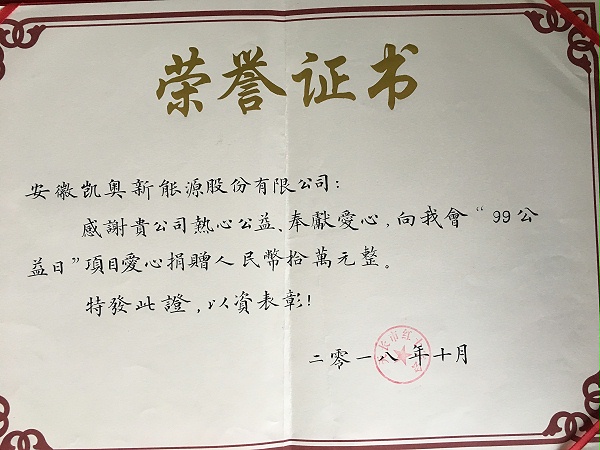 荣誉证书
安徽凯奥新能源股份有限公司：
感謝貴公司熱心公益、奉獻愛心，向我會“99公
益日”項目愛心捐贈人民幣拾萬元整。
特發此證，以資表彰！
二零一八年十月
长市红十